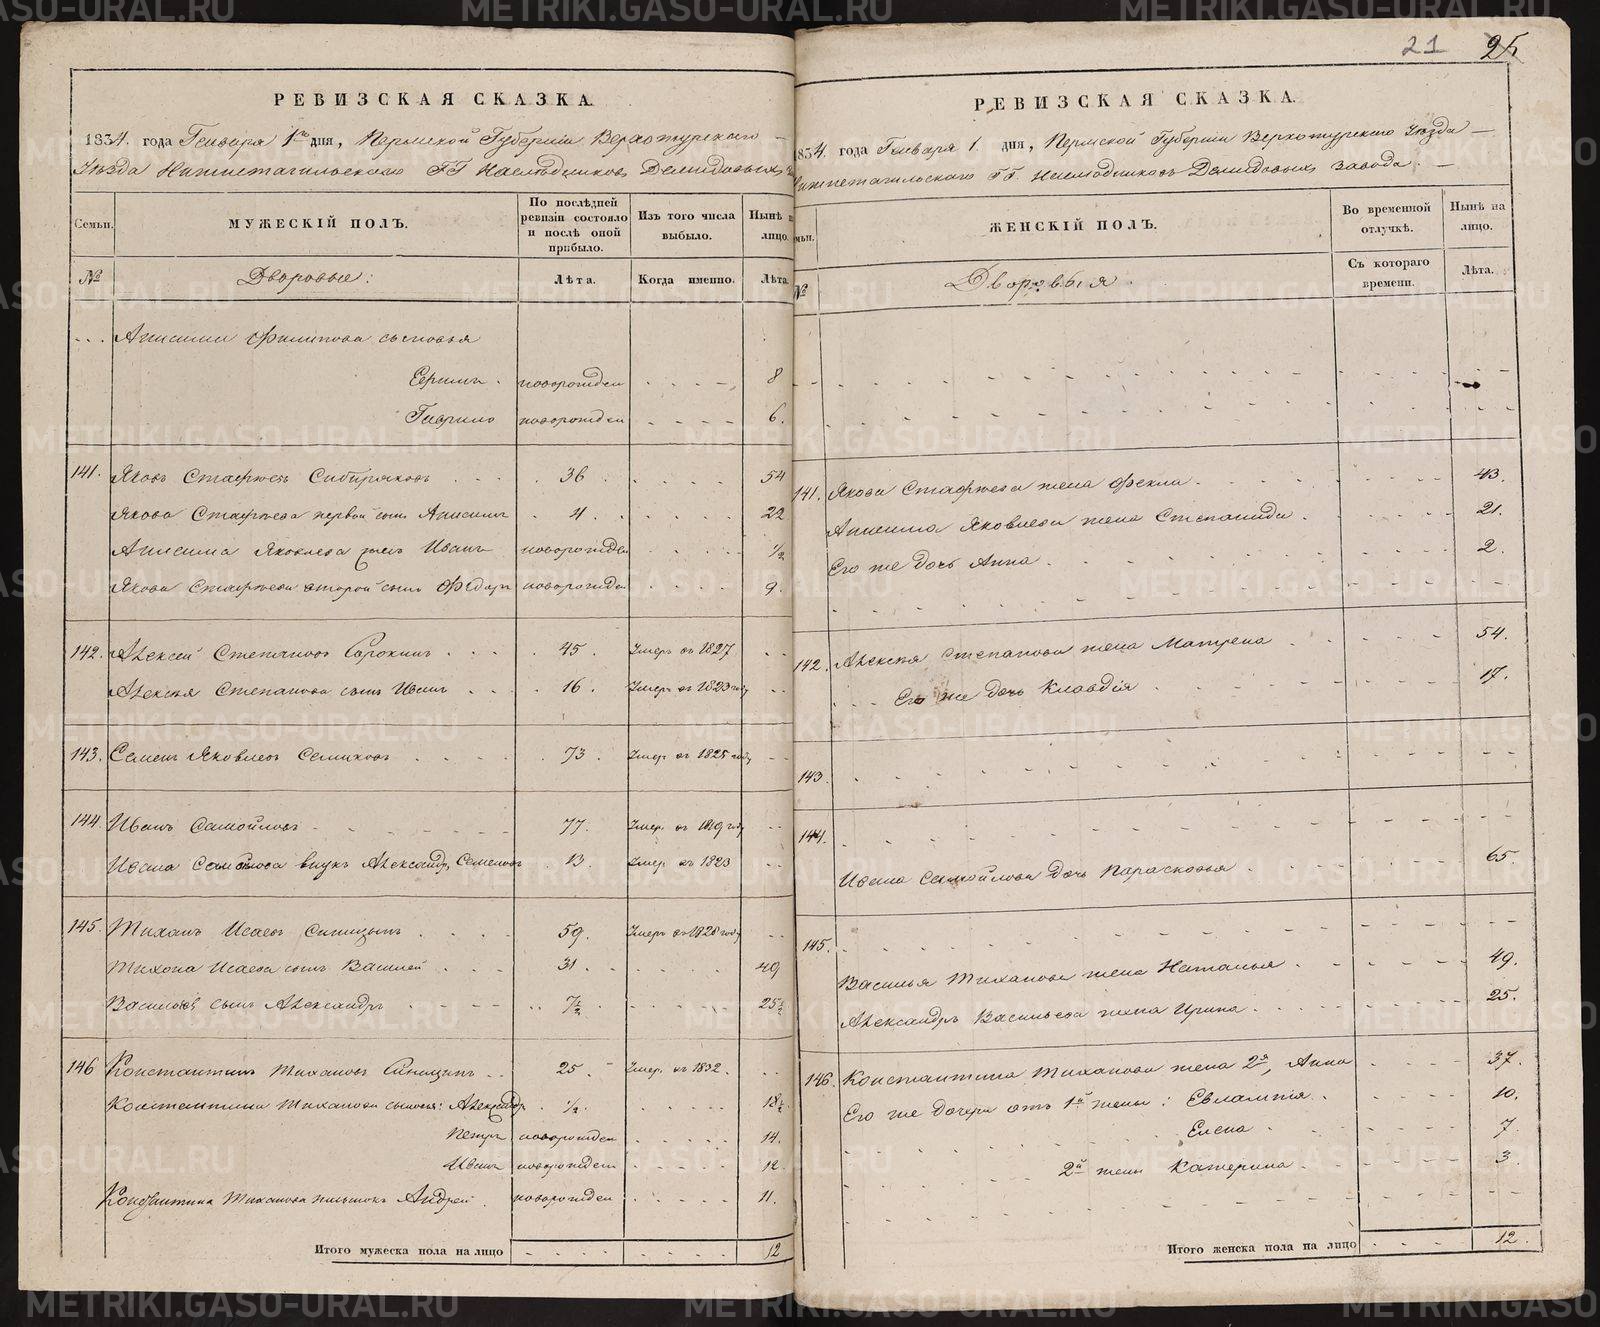 РЕВИЗСКАЯ СКАЗКА.
1834. года Генваря 1го дня, Пермской Губерніи Верхотурскаго
Уѣзда Нижнетагильскаго ГГ Наслѣдниковъ Демидовыхъ
Семьи. МУЖЕСКІЙ ПОЛЪ. По послѣдней ревизіи состояло и послѣ оной прибыло. Изъ того числа выбыло. Нынѣ на лицо.
№ Дворовые: Лѣта. Когда именно. Лѣта.
Анисима Филипова сыновья
новорожден 8
Гаврило новорожден 6.
141. Яковъ Стафѣевъ Сибиряковъ 36 54
Якова Стафѣева первой сынъ Анисимъ 4. 22
Анисима Яковлева сынъ Иванъ новорожден ½
Якова Стафѣева второй сынъ Федоръ новорожден 9.
142. Алексей Степановъ Сорокинъ 45. Умеръ въ 1827
Алексѣя Степанова сынъ Иванъ 16. Умеръ въ 1823 году
143. Семенъ Яковлевъ Семиковъ 73. Умер. въ 1825 году
144. Иванъ Самойловъ 77. Умер. въ 1819 году
Ивана Самойлова внукъ Александръ Семеновъ 13. Умер. въ 1823
145. Тиханъ Исаевъ Синицынъ 59. Умеръ въ 1828 году
Тихона Исаева сынъ Василей 31. 49
Васильевъ сынъ Александръ 7½ 25½
146 Константинъ Тихановъ Синицынъ 25. Умер. въ 1832.
Константина Тиханова сыновья: Александръ ½. 18½
Петръ новорожден 14.
Иванъ новорожден 12.
Константина Тиханова Андрей новорожден 11.
Итого мужеска пола на лицо 12
21 25
РЕВИЗСКАЯ СКАЗКА.
1834. года Генваря 1. дня, Пермской Губерніи Верхотурскаго Уѣзда
Нижнетагильскаго ГГ. Наслѣдниковъ Демидовыхъ завода.
Семьи. ЖЕНСКІЙ ПОЛЪ. Во временной отлучкѣ. Нынѣ на лицо.
№ Дворовыя Съ котораго времени. Лѣта.
141. Якова Стафѣева жена Фекла 43.
Анисима Яковлева жена Степанида 21.
Его же дочь Анна 2.
142. Алексѣя Степанова жена Матрена 54.
Его же дочь Клавдія 17.
143.
144.
Ивана Самойлова дочь Парасковья 65.
145.
Василья Тиханова жена Наталья 49.
Александръ Васильева жена Ирина 25.
146. Константина Тиханова жена 2я, Анна 37.
Его же дочери отъ 1й жены: Евлампія 10.
Елена 7.
2й жены Катерина 3.
Итого женска пола на лицо 12.
METRIKI.GASO-URAL.RU